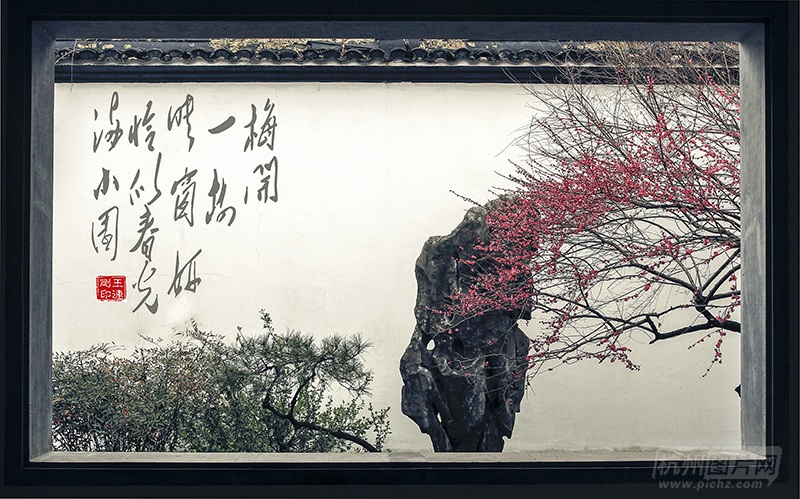 梅開
一树
映窗妍
恰似春光
满小園
王連
剛印
杭州图片网
www.pichz.com